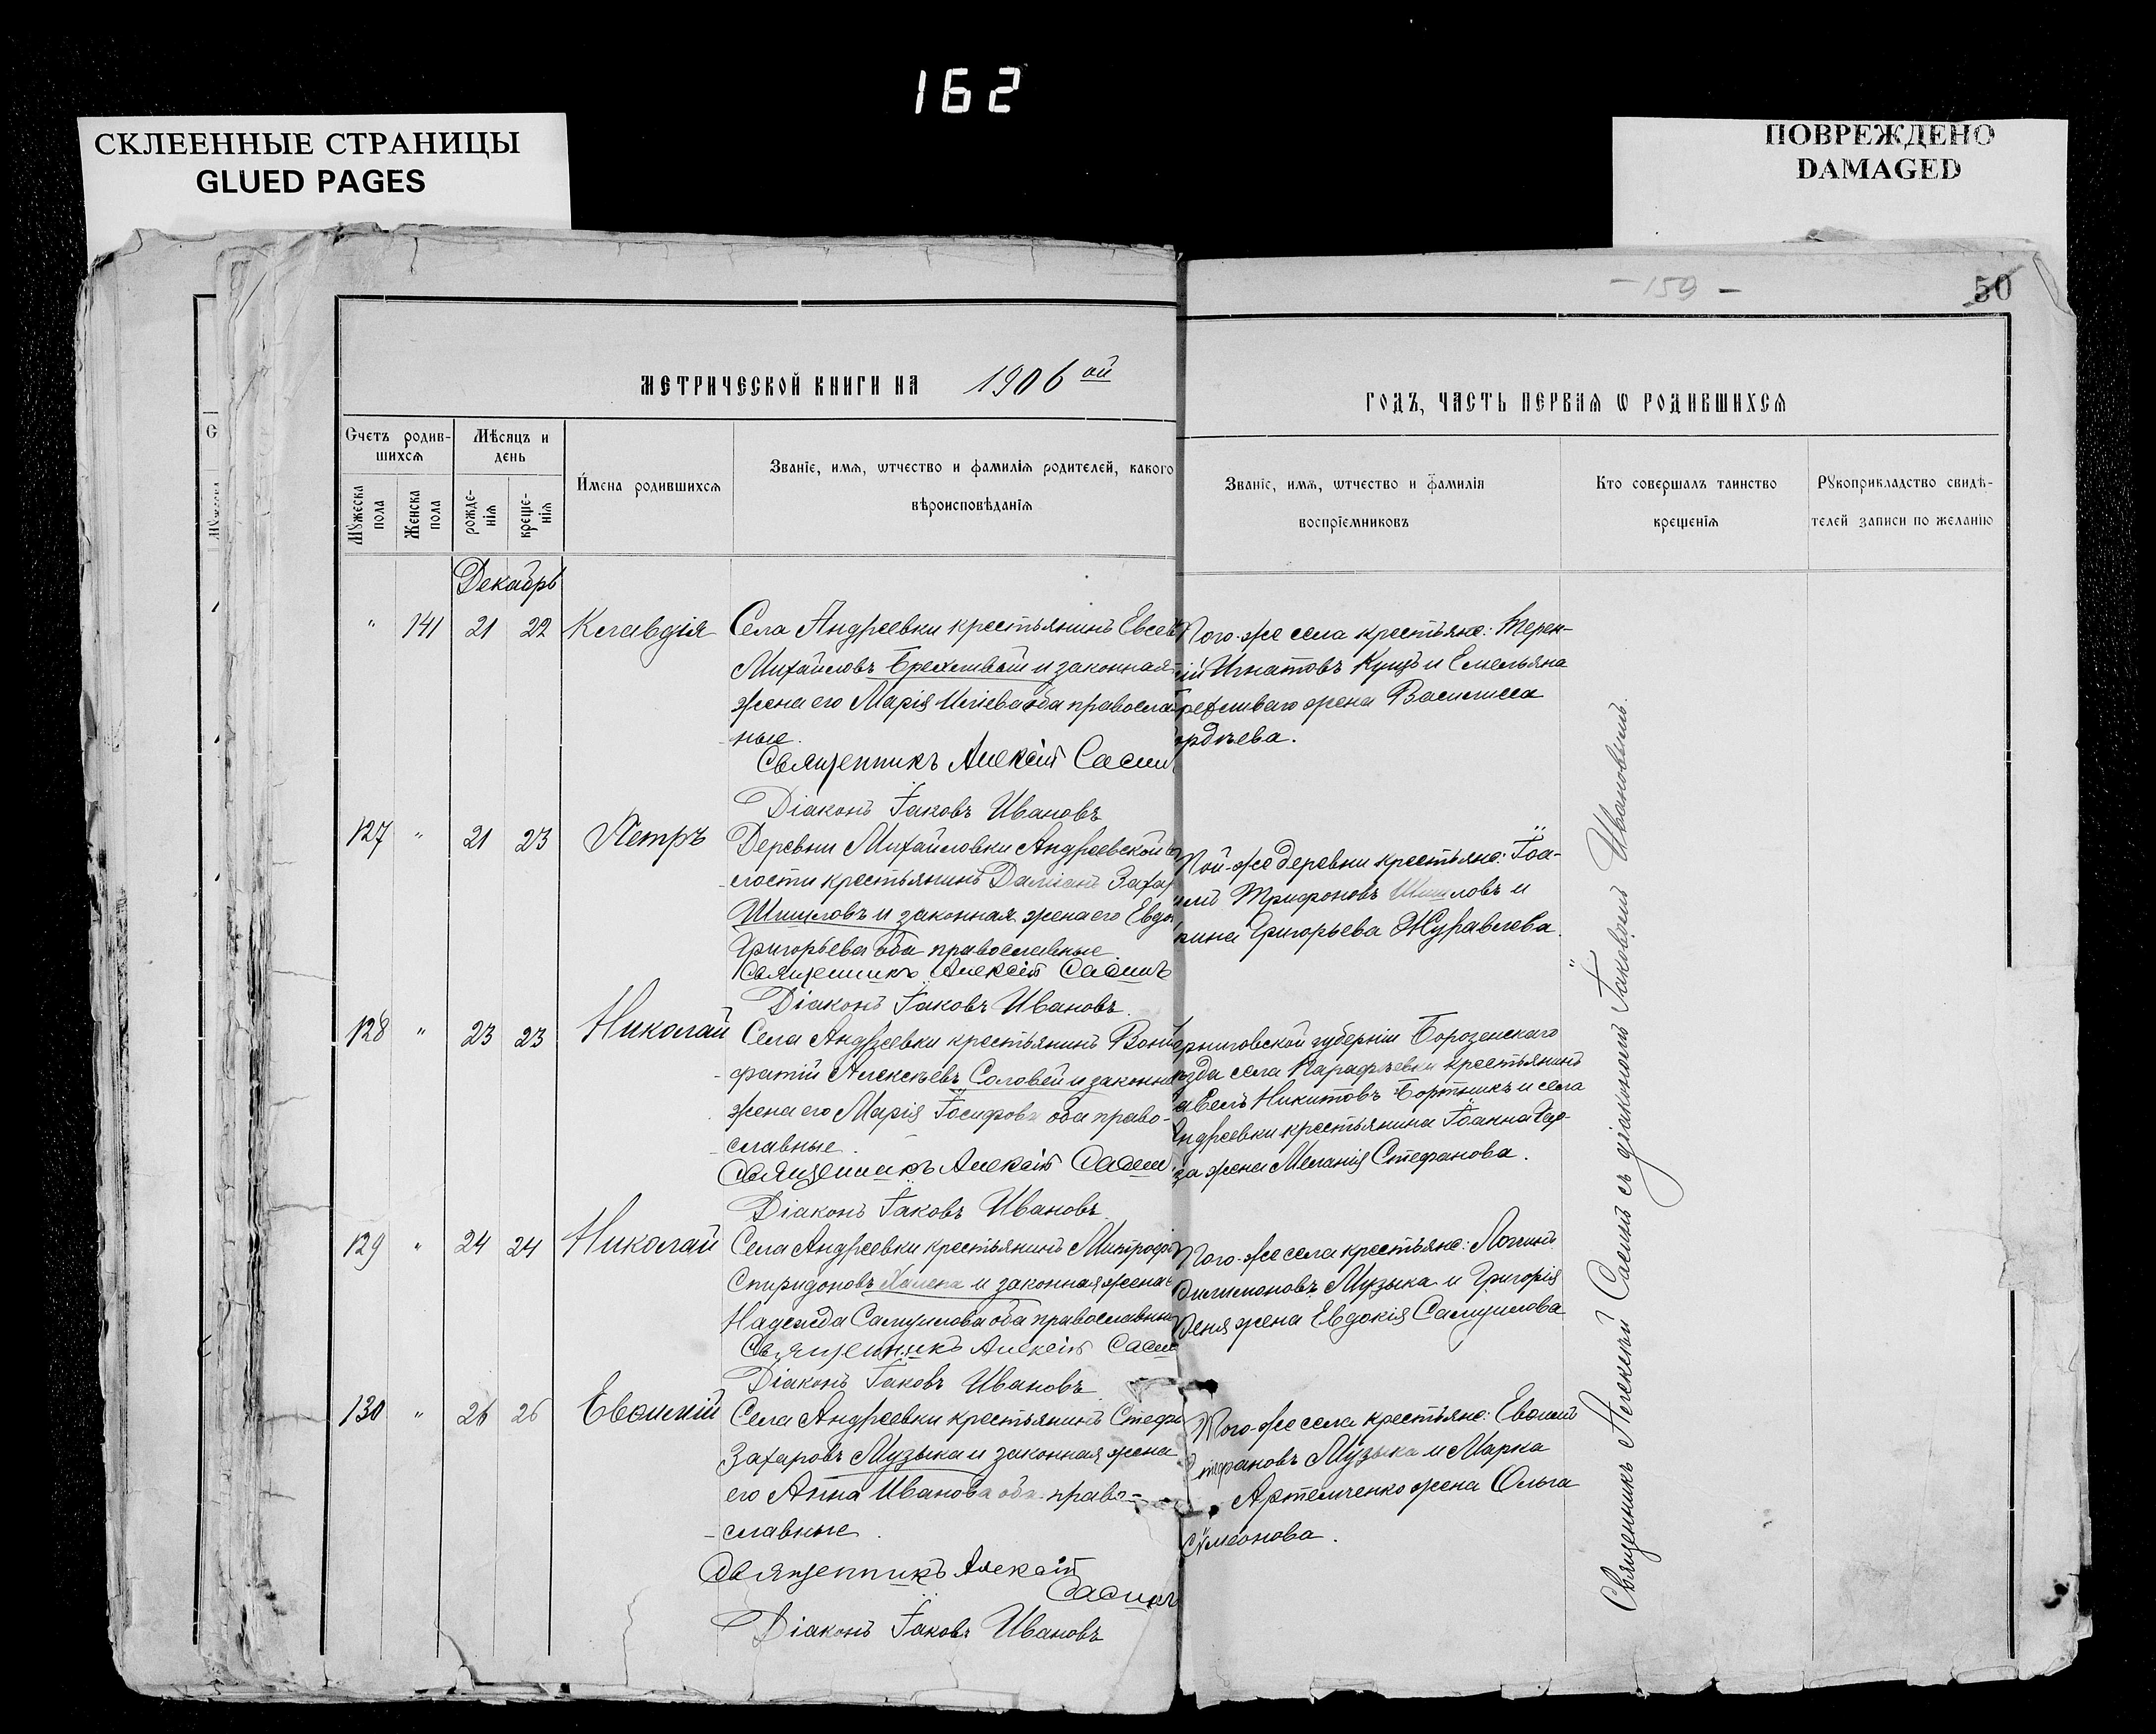 162
СКЛЕЕННЫЕ СТРАНИЦЫ
GLUED PAGES
ПОВРЕЖДЕНО
DAMAGED
- 159 -
50
МЕТРИЧЕСКОЙ КНИГИ НА 1906 ой
ГОДЪ, ЧАСТЬ ПЕРВАѦ Ѡ РОДИВШИХСѦ
Счетъ родив-
шихсѧ
Мѣсяцъ и
день
Мꙋжеска
пола
Женска
пола
рожде-
нїѧ
креще-
нїѧ
Имена родившихсѧ
Званїе, имѧ, ѡтчество и фамилїѧ родителей, какого
вѣроисповѣданїѧ
Званїе, имѧ, ѡтчество и фамилїѧ
воспрїемниковъ
Кто совершалъ таинство
крещенїѧ
Рꙋкоприкладство свидѣ-
телей записи по желанїю
Декабрь
" 141 21 22 Клавдія
Села Андреевки крестьянинъ Евсев
Михайловъ Брехливый и законная
жена его Марія Иліева оба правосла
ные.
Священникъ Алексій Сасин
Діаконъ Іаковъ Ивановъ
Того-же села крестьяне: Терен-
ій Игнатовъ Куцъ и Емельяна
рехливаго жена Василисса
ордѣева.
127 " 21 23 Петръ
Деревни Михайловки Андреевской во
лости крестьянинъ Даміанъ Захар
Шишловъ и законная жена его Евдо
Григорьева оба православные
Священникъ Алексій Сасинъ
Діаконъ Іаковъ Ивановъ.
Той-же деревни крестьяне: Іоа-
Трифоновъ Шишловъ и
Григорьева Журавлева.
128 " 23 23 Николай
Села Андреевки крестьянинъ Вони
фатій Алексѣевъ Соловей и законна
жена его Марія Іосифова оба право-
славные.
Священникъ Алексій Сасин
Діаконъ Іаковъ Ивановъ.
ерниговской губерніи Борозенскаго
ѣзда села Парафѣевки крестьянинъ
авелъ Никитовъ Бортникъ и села
ндреевки крестьянина Іоанна
за жена Меланія Стефанова.
129 " 24 24 Николай
Села Андреевки крестьянинъ Митрофа
Спиридоновъ Халепа и законная жена е
Надежда Самуилова оба православны
Священникъ Алексій Саси
Діаконъ Іаковъ Ивановъ
Того-же села крестьяне: Логинъ
Филимоновъ Музыка и Григорія
жена Евдокія Самуилова
130 " 26 26 Евѳимій
Села Андреевки крестьянинъ Стефа
Захаровъ Музыка и законная жена
его Анна Иванова оба право-
славные.
Священникъ Алексій
Сасинъ
Діаконъ Іаковъ Ивановъ
Того-же села крестьяне: Евѳимій
тефановъ Музыка и Марка
Артемченко жена Ольга
Сѵмеонова.
Священникъ Алексѣй Сасинъ съ діакономъ Іаковомъ Ивановымъ.